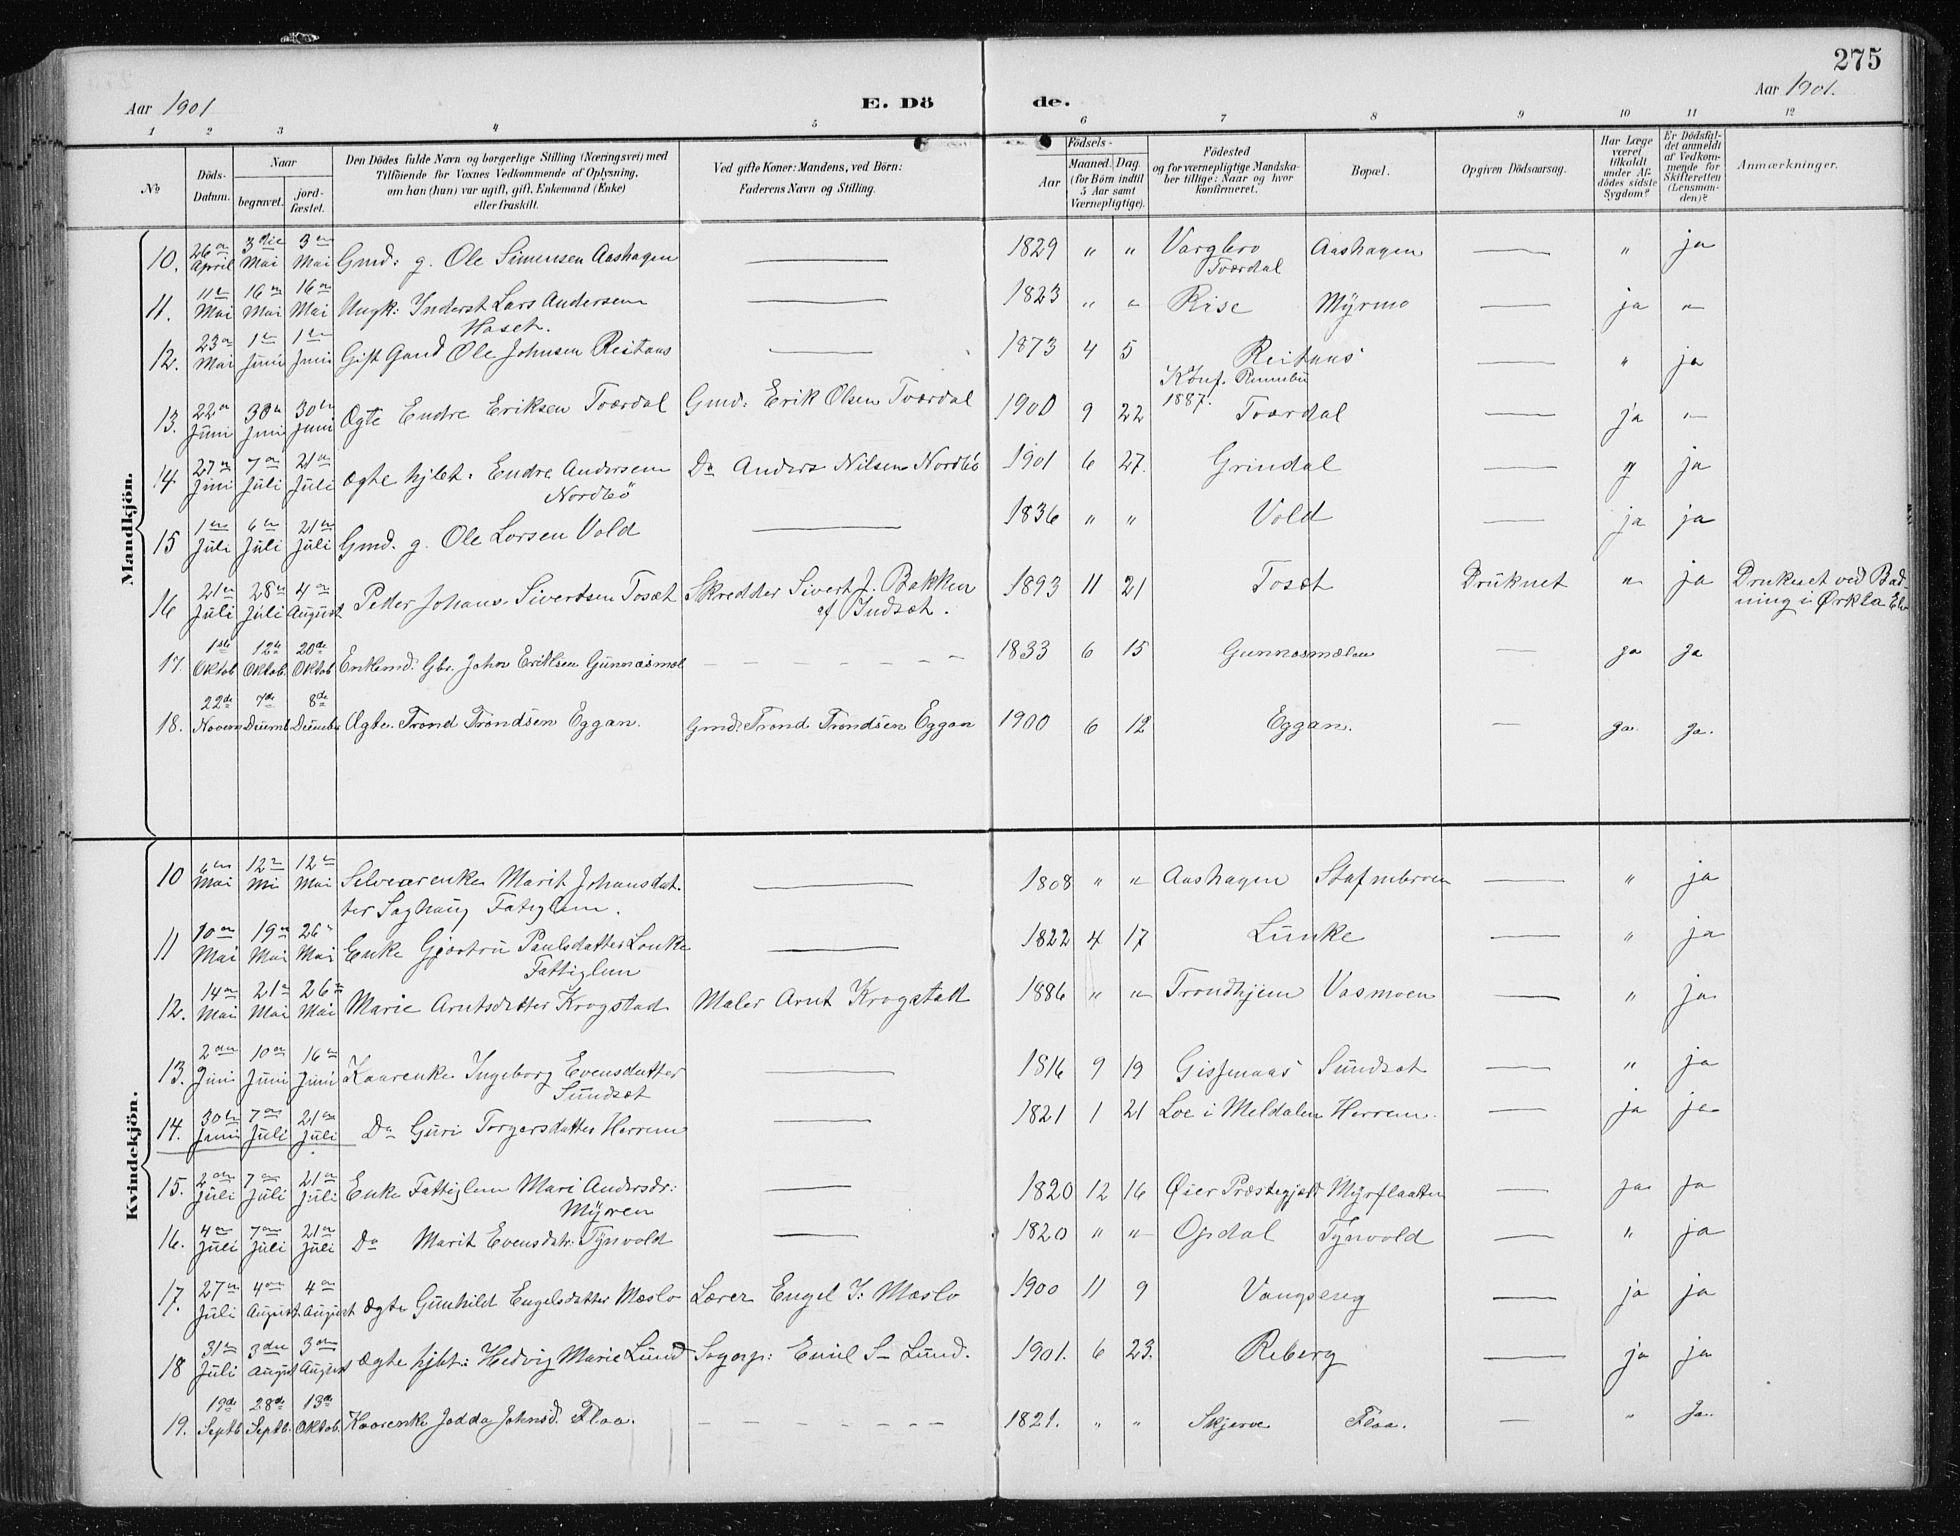 275
Aar 1901 E. Dö de. Aar 1901.
1 2 3 4 5 6 7 8 9 10 11 12
No
Döds-Datum.
Naar
begravet.
jord-fæstet.
Den Dödes fulde Navn og borgerlige Stilling (Næringsvei) med
Tilföiende for Voxnes Vedkommende af Oplysning,
om han (hun) var ugift, gift, Enkemand (Enke)
eller fraskilt.
Ved gifte Koner: Mandens, ved Börn:
Faderens Navn og Stilling.
Födsels-
Aar
Maaned. Dag.
(for Börn indtil
5 Aar samt
Værnepligtige).
Födested
og for værnepligtige Mandska-
ber tillige: Naar og hvor
konfirmeret.
Bopæl.
Opgiven Dödsaarsag.
Har Læge
været
tilkaldt
under Af-
dödes sidste
Sygdom?
Er Dödsfal-
det anmeldt
af Vedkom-
mende for
Skifteretten
(Lensman-
den)?
Anmærkninger.
Mandkjön.
10. 26 April 3die Mai 3 Mai Gmd: g. Ole Simensen Aashagen — 1829 " " Vargbro Tværdal Aashagen — " ja
11. 11 Mai 16 Mai 16 Mai Ungk: Inderst Lars Andersen — 1823 " " Rise Myrmo — ja "
Haset.
12. 23 Mai 1 Juni 1 Juni Gift Gmd Ole Johnsen Reitaas — 1873 4 5 Reitaas — " ja
Konf. Rennebu
1887.
13. 22 Juni 30 Juni 30 Juni Ægte Endre Eriksen Tværdal Gmd: Erik Olsen Tværdal 1900 9 22 Tværdal — ja "
14. 27 Juni 7 Juli 21 Juli Ægte hjbt: Endre Andersen Do Anders Nilsen Nordbö 1901 6 27. Grindal — ja
Nordbö
15 1 Juli 6 Juli 21 Juli Gmd. g. Ole Larsen Vold — 1836 " " Vold — ja ja
16 21 Juli 28 Juli 4 August Petter Johans. Sivertsen Tosæt Skredder Sivert J. Bakken 1893 11 21 Tosæt Druknet " ja Druknet ved Bad-
af Indsæt. ning i Ørkla Elv
17. 1ste Oktob 12te Oktob. 20de Oktob Enkemd: Gbr. John Eriksen Gunnasmæl – – – – – – 1833 6 15 Gunnasmælen — ja ja
18. 22de Novem 7de Decmb 8de Decmber Ægte. Trond Trondsen Eggan. Gmd: Trond Trondsen Eggan 1900 6 12 Eggan. — ja. ja.
Kvindekjön.
10 6 Mai 12 Mi 12 Mai Selveierenke Marit Johansdat- — 1808 " " Aashagen — " ja
ter Saghaug Fatiglem.
11 10 Mai 19 Mai 26 Mai Enke Gjørtru Paulsdatter Lunke — 1822 4 17 Lunke — " ja
Fattiglem
12. 14 Mai 21 Mai 26 Mai Marie Arntsdatter Krogstad Maler Arnt Krogstad 1886 " " Trondhjem Vasmoen — " ja
13. 2den Juni 10 Juni 16 Juni Kaarenke Ingeborg Evensdatter — 1816 9 19 Gisnaas Sundsæt — " ja
Sundsæt
14. 30 Juni 7 Juli 21 Juli Do Guri Torgersdatter Herrem — 1821 1 21 Loe i Meldalen Herrem. — ja ja
15. 2den Juli 7 Juli 21 Juli Enke Fattiglem Mari Andersdr: — 1820 12 16 Øier Præstegjæld Myrflaatten — ja ja
Myren
16. 4 Juli 7 Juli 21 Juli Do Marit Evensdatr. Tynvold — 1820 " " Opdal Tynvold — " ja
17. 27 Juli 4 August 4 August Ægte Gunhild Engelsdatter Mæslo Lærer Engel I. Mæslo 1900 11 9 Vangseng — ja ja
18 31 Juli 3die August 3 August Ægte hjbt.: Hedvig Marie Lund Sagarp: Emil S– Lund. 1901. 6 23. Reberg — ja ja
19. 19de Septb. 28de Septb. 13de Oktob. Kaarenke Jodda Johnsd. Flaa. – – – – – – – 1821. " " Skjerve Flaa. — " Ja.